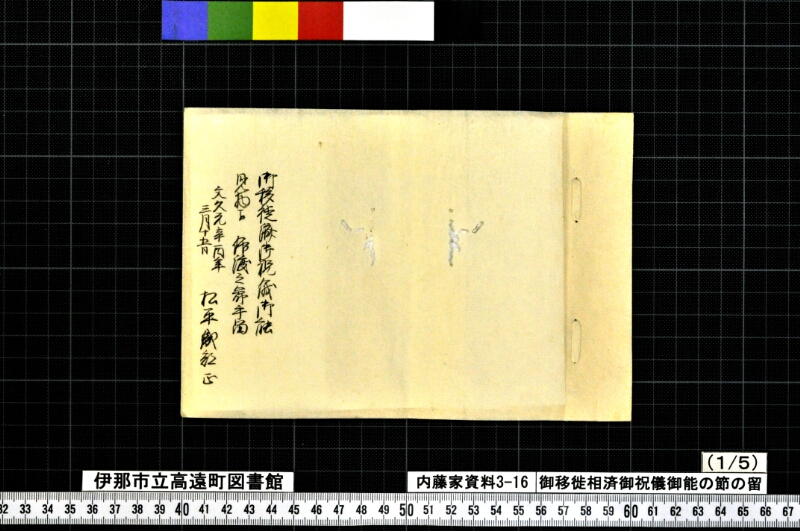 御移徙済御祝儀御能
文久元年
三月十五日
松平
正
(1/5)
伊那市立高遠町図書館
内藤家資料3-16
御移徙相済御祝儀御能の節の留
32 33 34 35 36 37 38 39 40 41 42 43 44 45 46 47 48 49 50 51 52 53 54 55 56 57 58 59 60 61 62 63 64 65 66 67